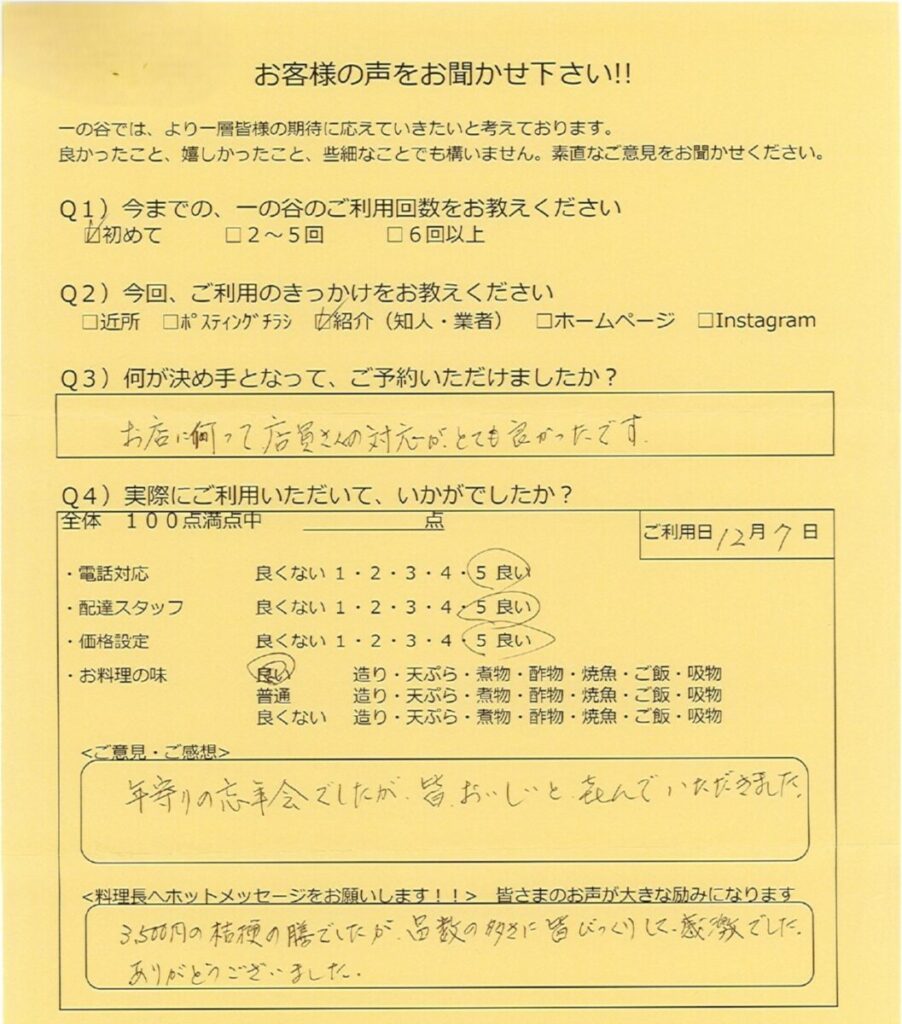 お客様の声をお聞かせ下さい!!
一の谷では、より一層皆様の期待に応えていきたいと考えております。
良かったこと、嬉しかったこと、些細なことでも構いません。素直なご意見をお聞かせください。
Q1）今までの、一の谷のご利用回数をお教えください
☑初めて □2～5回 □6回以上
Q2）今回、ご利用のきっかけをお教えください
□近所 □ﾎﾟｽﾃｨﾝｸﾞﾁﾗｼ ☑紹介（知人・業者） □ホームページ □Instagram
Q3）何が決め手となって、ご予約いただけましたか？
お店に伺って店員さんの対応が、とても良かったです。
Q4）実際にご利用いただいて、いかがでしたか？
全体 100点満点中 ＿＿＿＿＿点
ご利用日 12月 7日
・電話対応 良くない 1・2・3・4・5 良い
・配達スタッフ 良くない 1・2・3・4・5 良い
・価格設定 良くない 1・2・3・4・5 良い
・お料理の味 良い 造り・天ぷら・煮物・酢物・焼魚・ご飯・吸物
普通 造り・天ぷら・煮物・酢物・焼魚・ご飯・吸物
良くない 造り・天ぷら・煮物・酢物・焼魚・ご飯・吸物
<ご意見・ご感想>
年寄りの忘年会でしたが、皆、おいしいと喜んでいただきました。
<料理長へホットメッセージをお願いします！！> 皆さまのお声が大きな励みになります
3,500円の桔梗の膳でしたが、品数の多さに皆びっくりして、感激でした。
ありがとうございました。